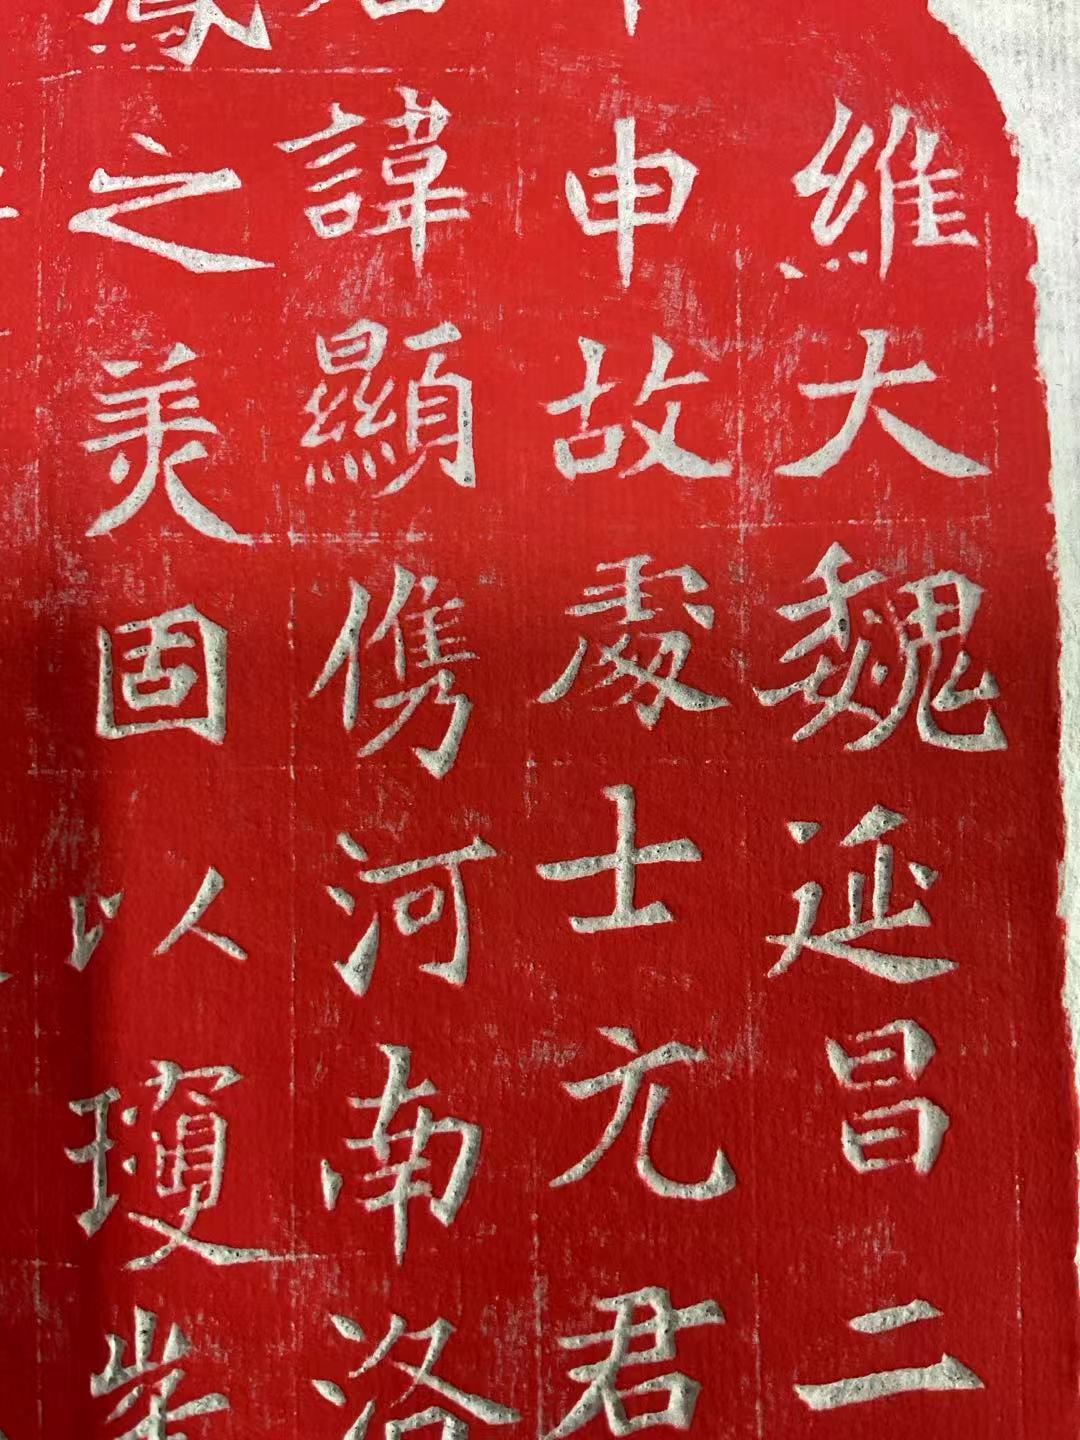 維大魏延昌二
申故處士元君
諱顯儁河南洛
之美固以瓊